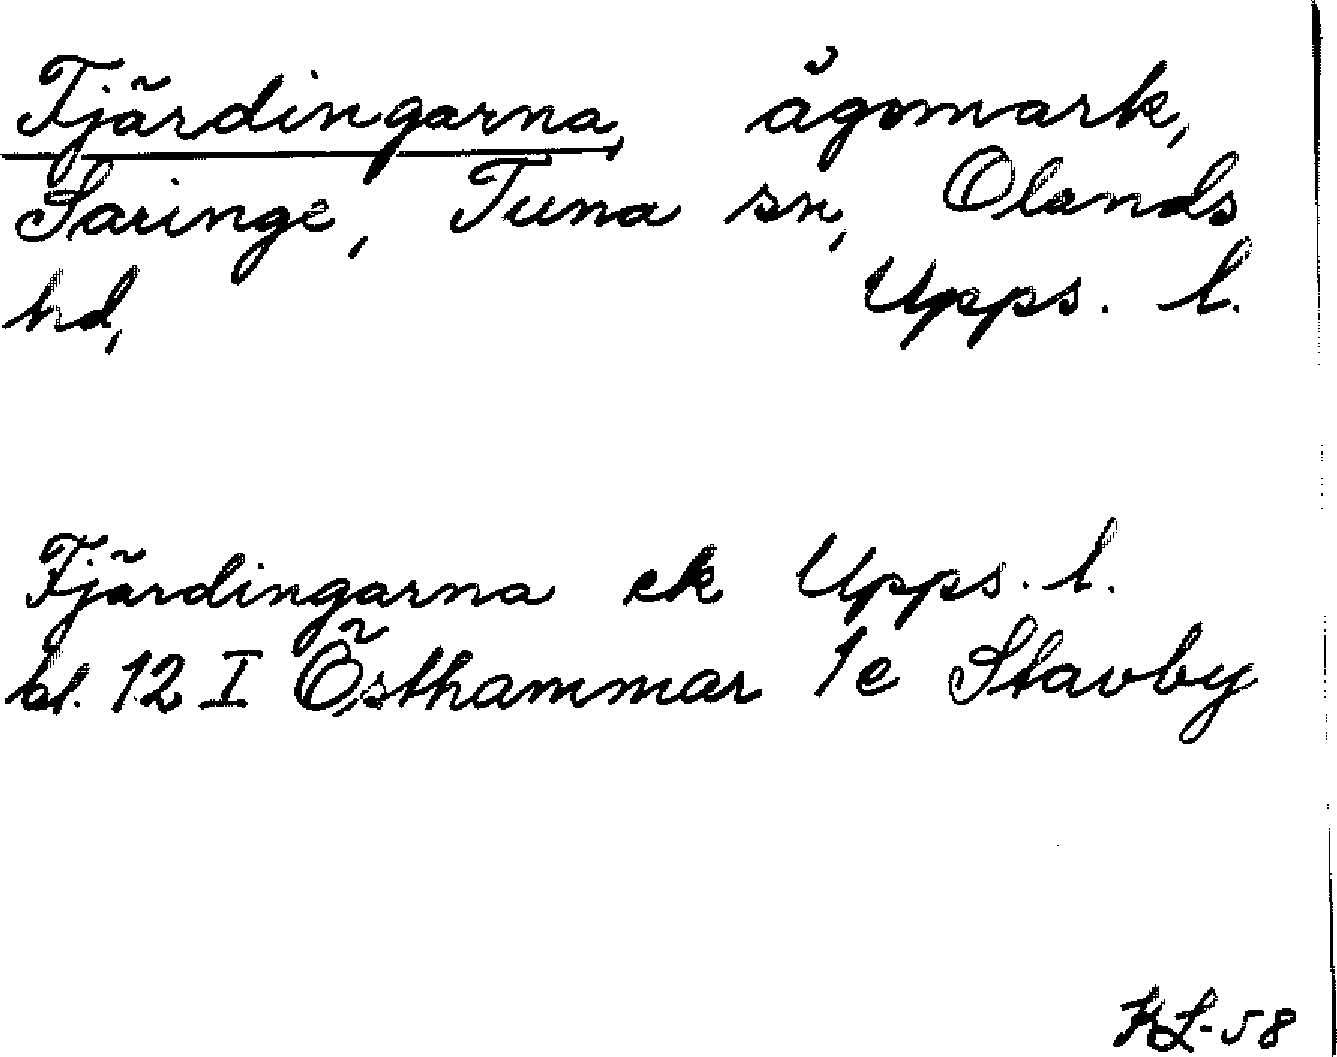 Fjärdingarna, ägomark,
Saringe, Tuna sn, Olands
hd, Upps. l.
Fjärdingarna ek Upps. l.
bl. 12 I Östhammar 1e Stavby
KL-58